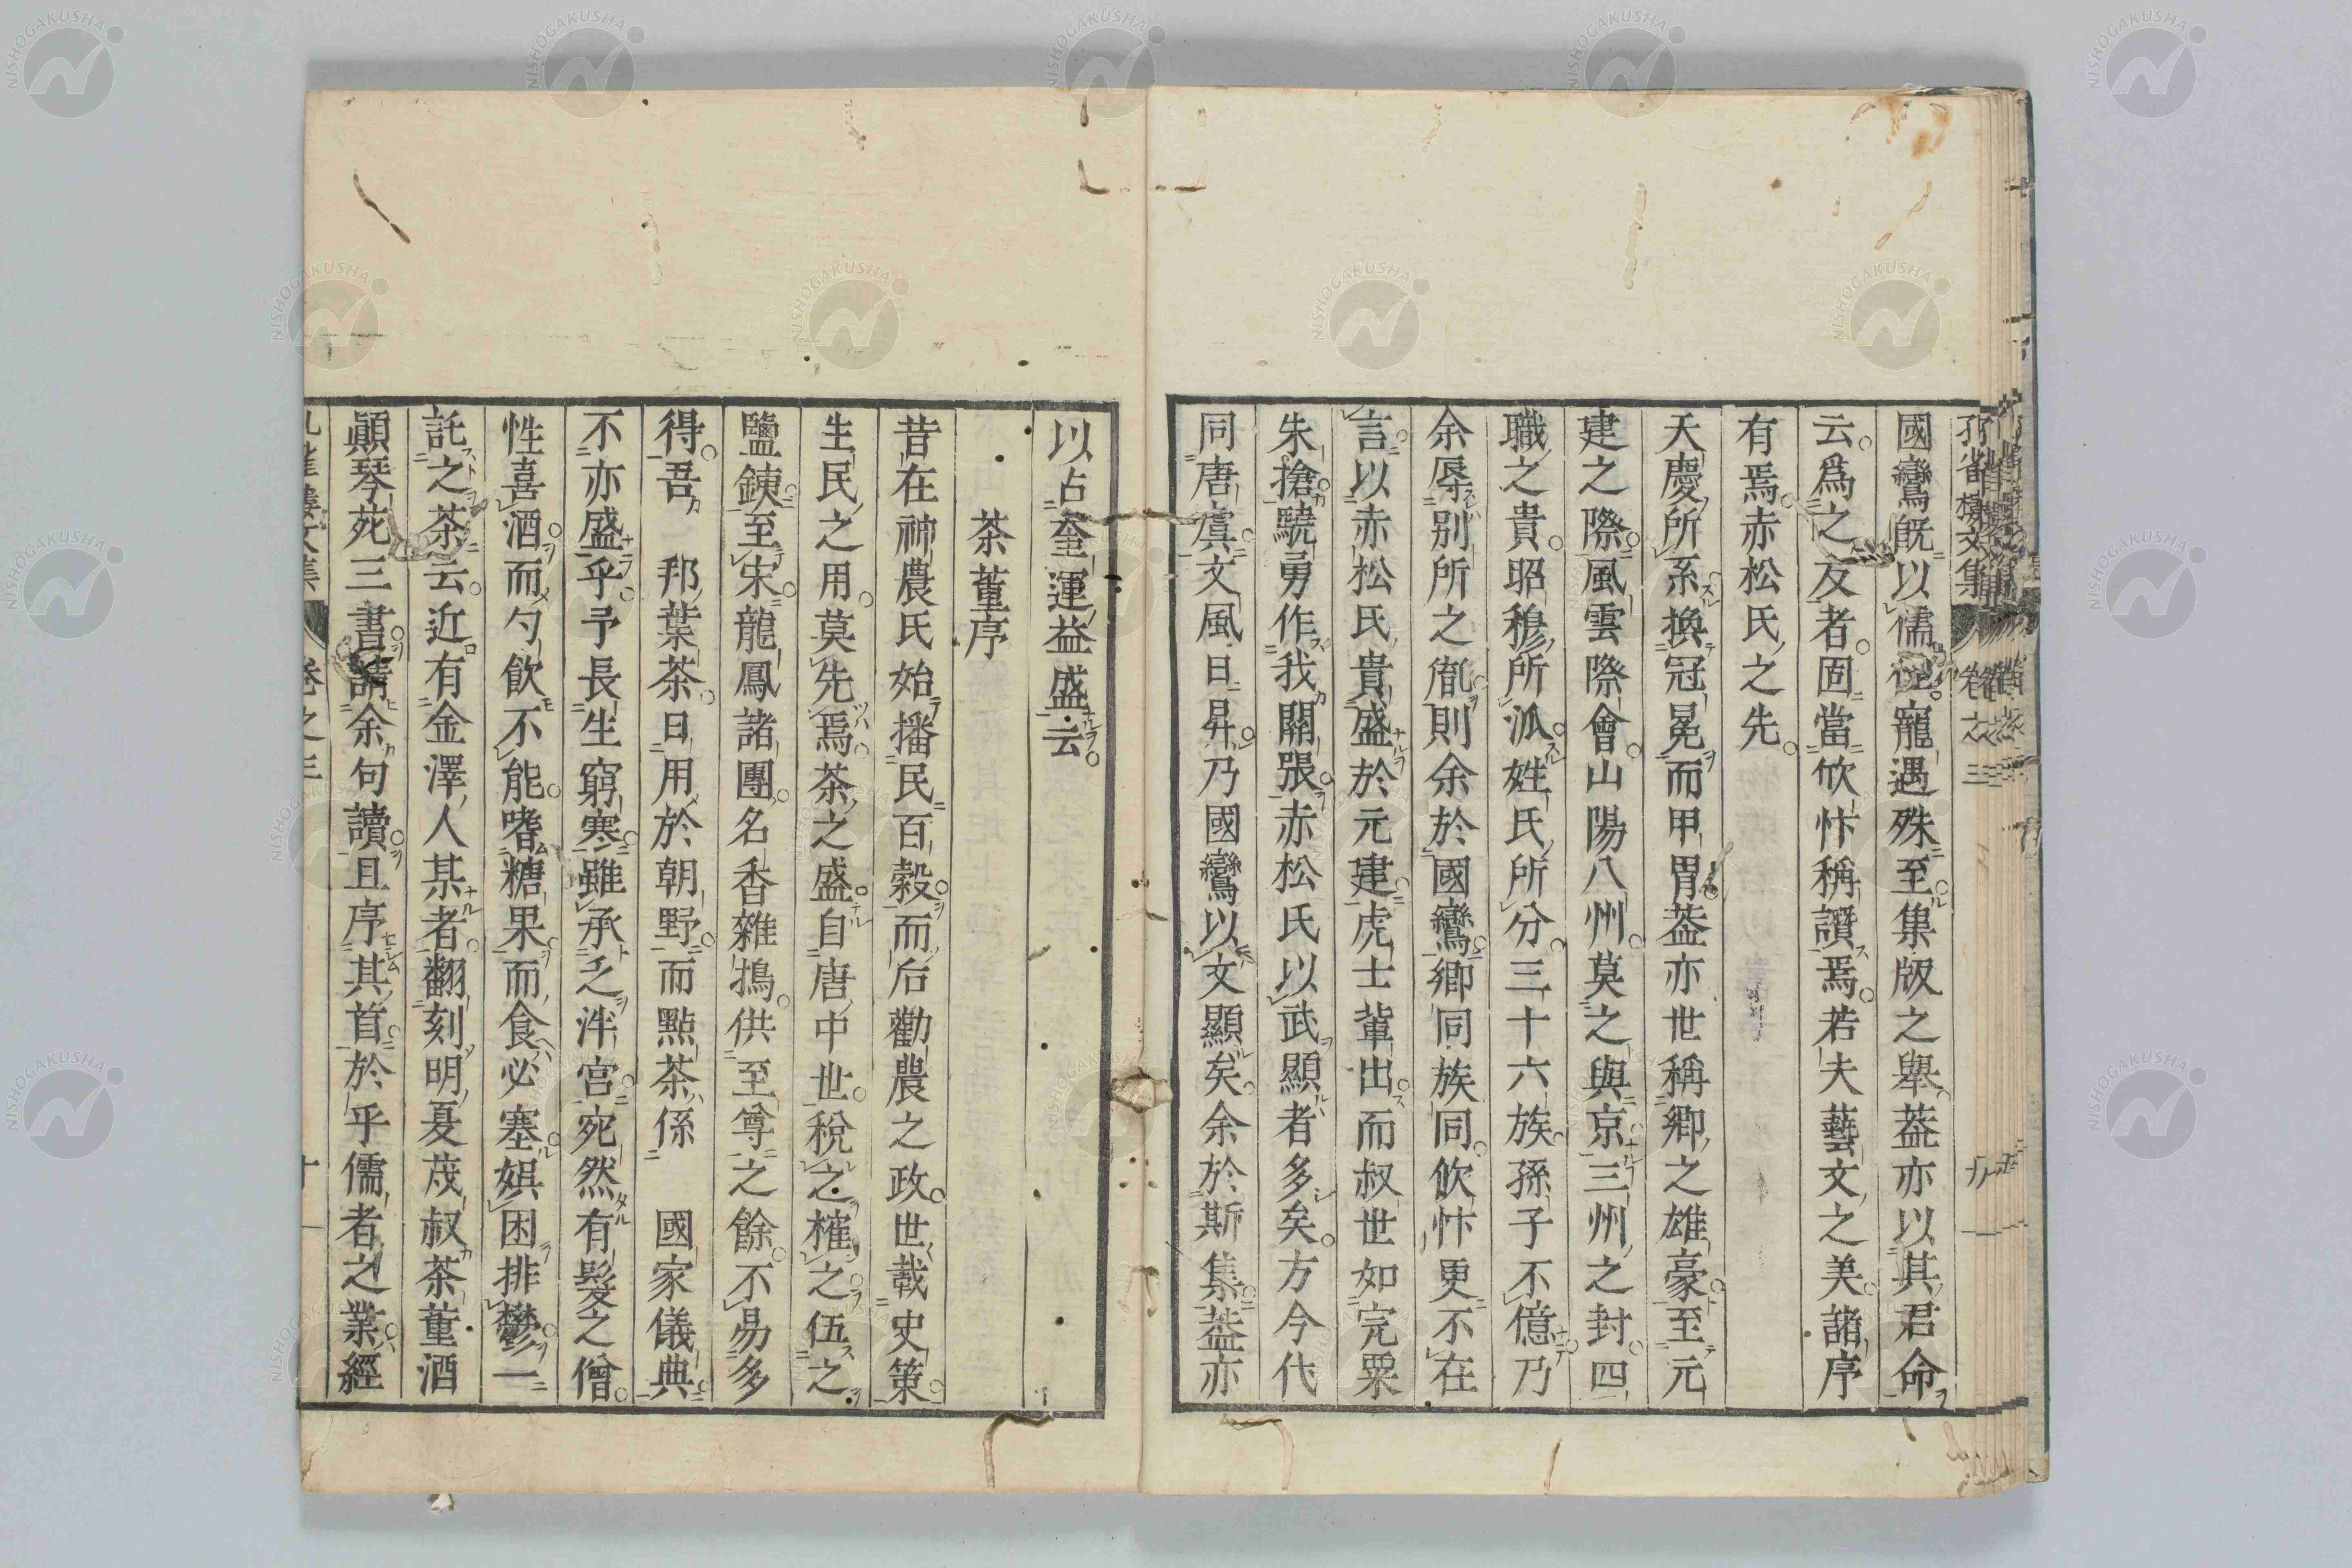 國鸞既以儒術寵遇殊至集版之舉葢亦以其君命
云爲之友者固當佽忭稱讚焉若夫藝文之美諸序
有焉赤松氏之先
天慶所系換冠冕而甲冑葢亦世稱卿之雄豪至元
建之際風雲際會山陽八州莫之與京三州之封四
職之貴昭穆所派姓氏所分三十六族孫子不億乃
余辱别所之胤則余於國鸞卿同族同佽忭更不在
言以赤松氏貴盛於元建虎士輩出而叔世如完粟
朱搶驍勇作我關張赤松氏以武顯者多矣方今代
同唐虞文風日昇乃國鸞以文顯矣余於斯集葢亦
以占奎運益盛云
茶董序
昔在神農氏始播民百穀而后勸農之政世載史策
生民之用莫先焉茶之盛自唐中世稅之榷之伍之
鹽鐵至宋龍鳳諸團名香雜搗供至尊之餘不易多
得吾 邦葉茶日用於朝野而點茶係 國家儀典
不亦盛乎予長生窮寒雖承乏泮宮宛然有髮之僧
性喜酒而勺飲不能嗜糖果而食必塞娯困排鬱一
託之茶云近有金澤人某者翻刻明夏茂叔茶董酒
顚琴苑三書請余句讀且序其首於乎儒者之業經
孔雀樓文集 卷之三
NISHOGAKUSHA